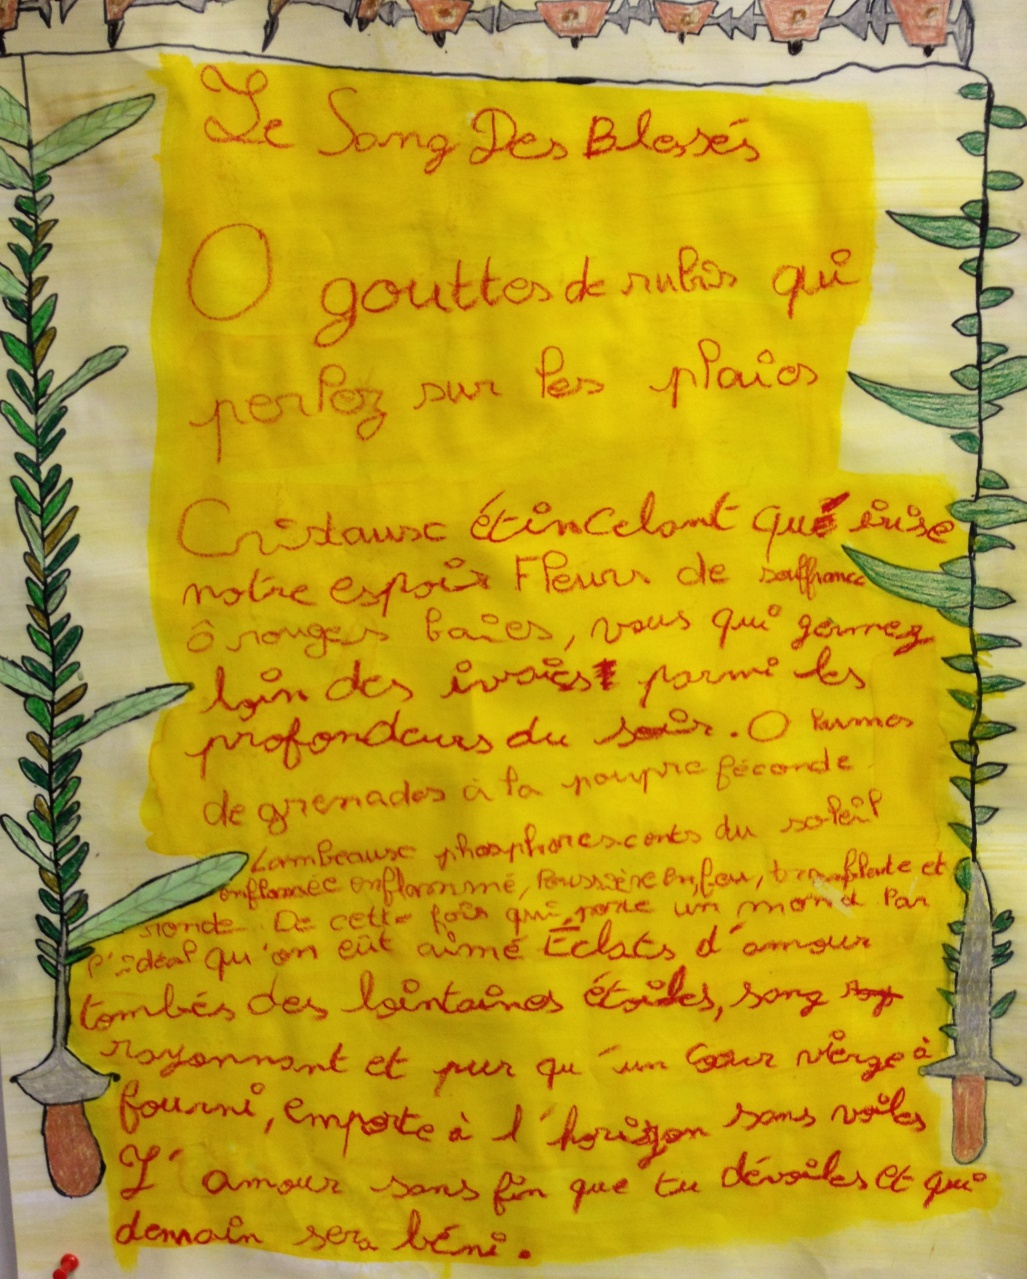 Le Sang Des Blessés
O gouttes de rubis qui
perlez sur les plaies
Cristaux étincelant que irise
notre espoir Fleurs de souffrance
ô rouges baies, vous qui germez
loin des ivoies parmi les
profondeurs du soir. O larmes
de grenades à la poupre féconde
Lambeaux phosphorescents du soleil
enflamée enflammé, Poussière en feu, et
ronde De cette fois qui porte un mond Par
l'idéal qu'on eût aimé Éclats d'amour
tombés des lointaines étoiles, sang
rayonnant et pur qu'un Cœur vierge à
fourni, emporte à l'horizon sans voiles
L'amour sans fin que tu dévoiles et qui
demain sera béni.